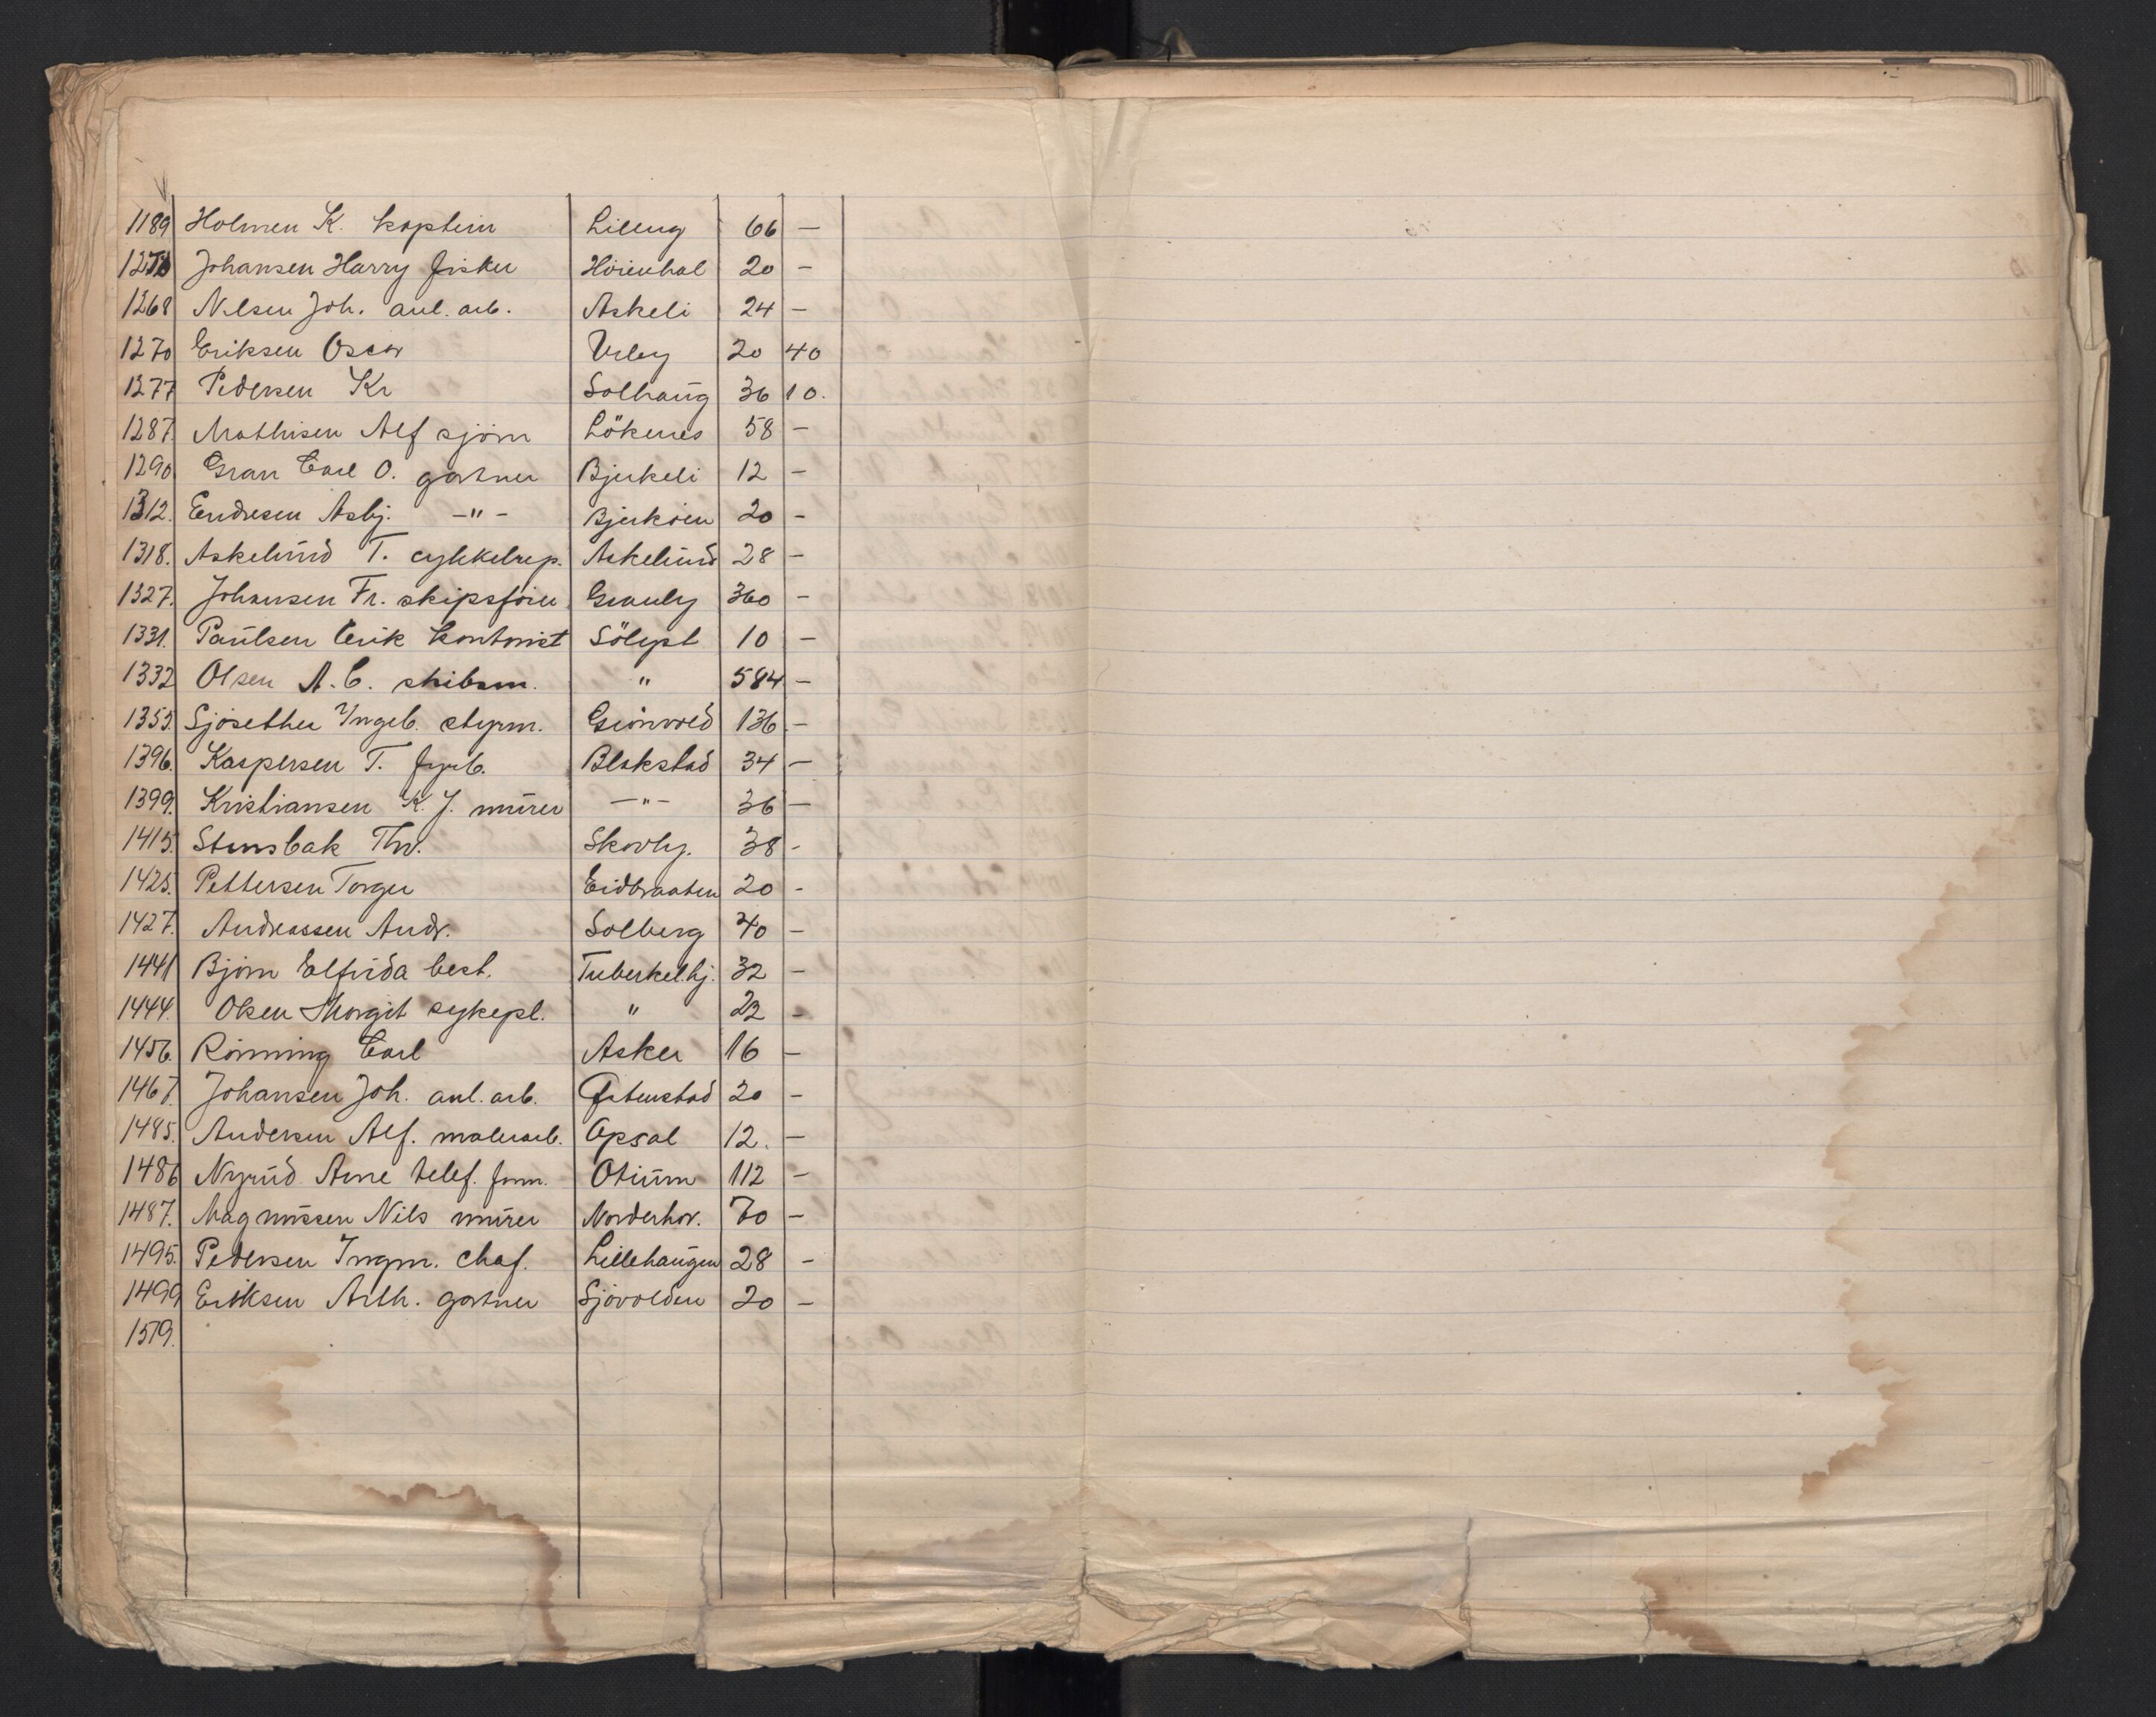 1189 Holmen K. kaptein Lilleng 66 —
Johansen Harry fisker Höienhal 20 —
1268 Nilsen Joh. anl. arb. Askeli 24 —
1270 Eriksen Oscar Urby 20 40
1277 Pedersen Kr Solhaug 36 10.
1287. Mathisen Alf sjöm Lökenes 58 —
1290. Gran Carl O. gartner Bjerkeli 12 —
1312. Endresen Asbj. —"— Bjerkåsen 20 —
1318. Askelund T. cykkelrep. Askelund 28 —
1327. Johansen Fr. skipsförer Granly 360 —
1331. Paulsen Erik kontorist Sölyst 10 —
1332 Olsen A. C. skibsm. " 584 —
1353. Sjösether Yngb. styrm. Grönvold 136 —
1396. Kaspersen T. fyrb. Blakstad 34 —
1399. Kristiansen K. J. murer —"— 36 —
1415. Stensbak Thv. Skovly. 38 -
1425. Pettersen Torger Eidbraaten 20 -
1427. Andreassen Andr. Solberg 40 —
1441 Björn Elfrida best. Tuberkelhj. 32 —
1444. Olsen Margit sykepl. " 22 —
1456. Rönning Carl Asker 16 —
1467. Johansen Joh. anl. arb. Östenstad 20 —
1485. Andersen Alf. malerarb. Opsal 12. —
1486 Nyrud Arne telef. form. Otium 112 —
1487. Magnussen Nils murer Norderhov. 70 —
1495. Pedersen Ingm. chaf. Lillehaugen 28 —
1499 Eriksen Arth. gartner Sjövolden 20 —
1519.